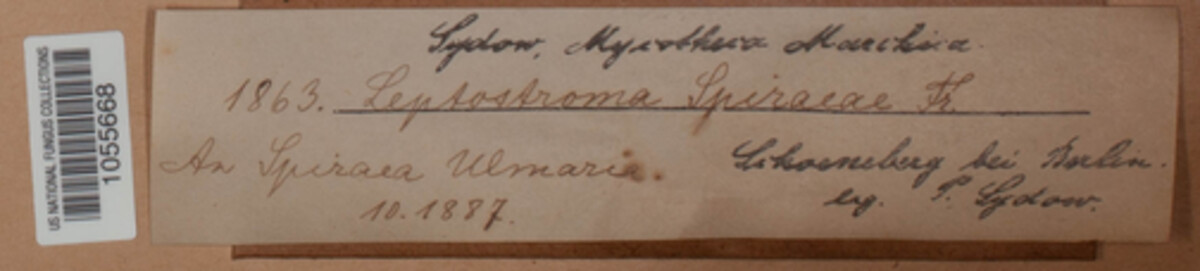 US NATIONAL FUNGUS COLLECTIONS
1055668
Sydow, Mycotheca Marchica.
1863. Leptostroma Spiraeae Fr.
An Spiraea Ulmaria.
10.1887.
Schoeneberg bei Berlin.
leg. P. Sydow.